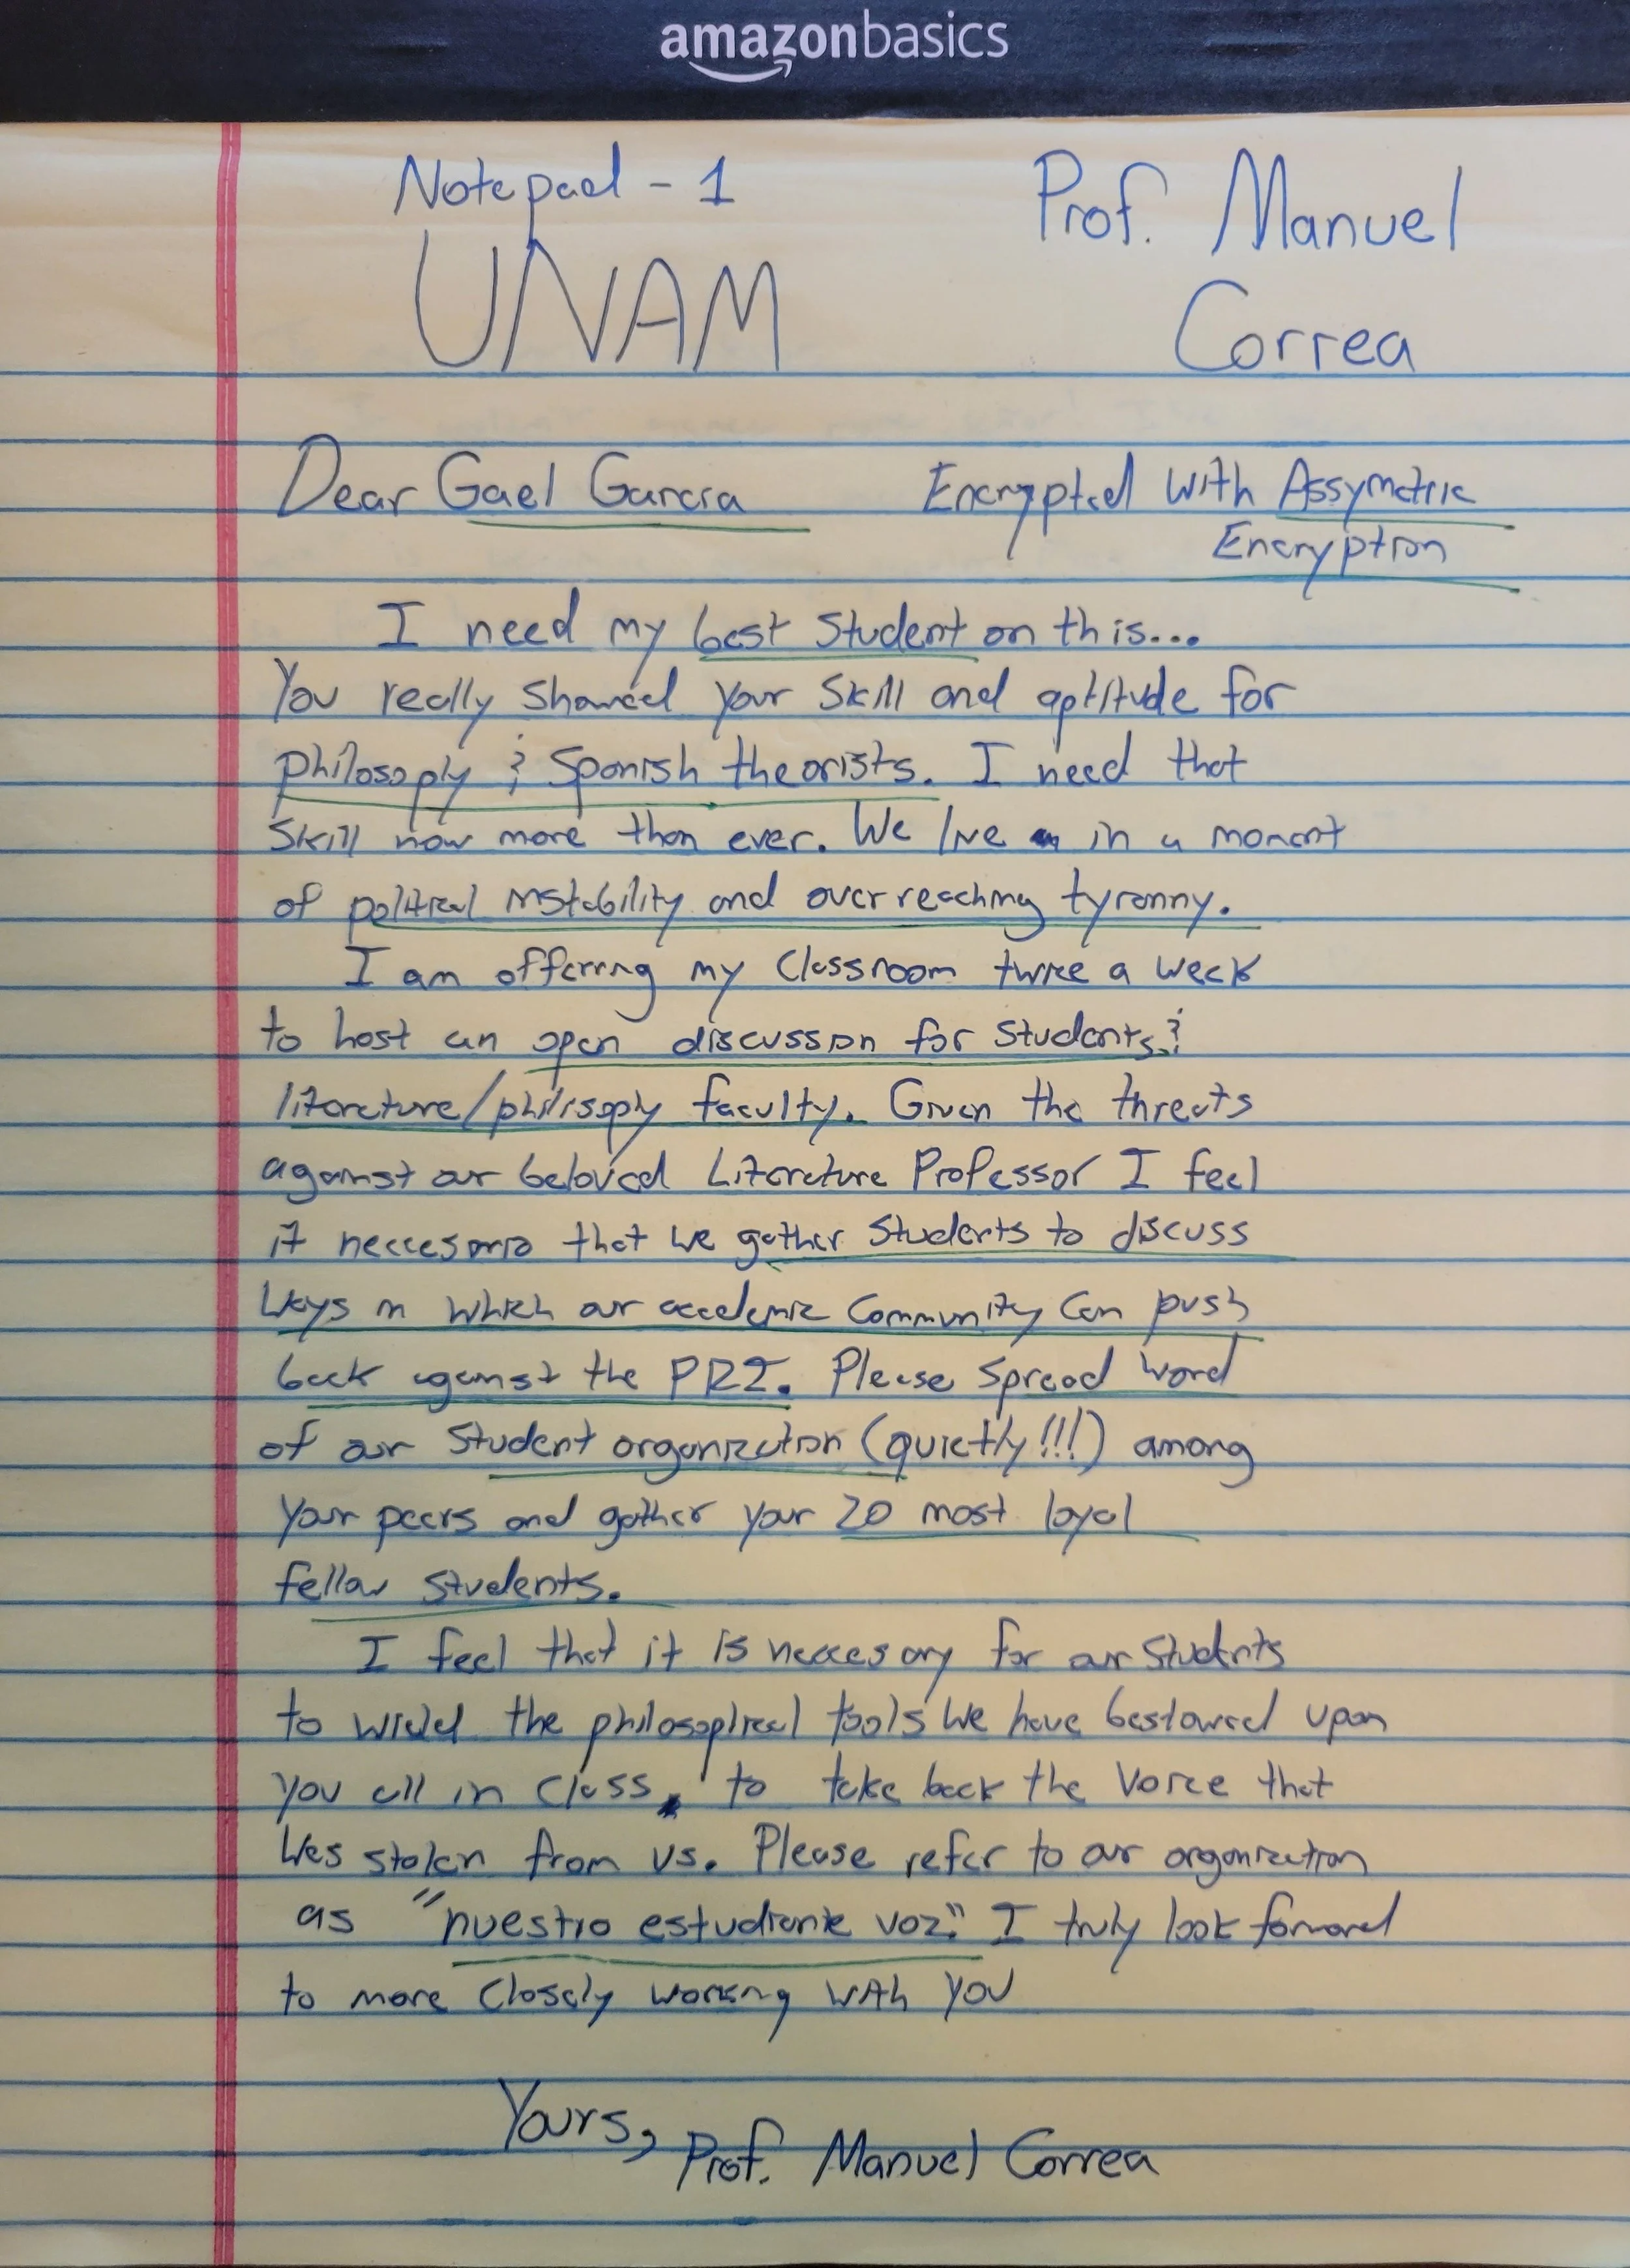 amazonbasics
Notepad - 1
UNAM
Prof. Manuel
Correa
Dear Gael Garcia
Encrypted with Assymetric
Encryption
I need my best student on this...
You really showed your skill and aptitude for
philosoply & Spanish theorists. I need that
skill now more than ever. We live in a moment
of political instability and overreaching tyranny.
I am offering my classroom twice a week
to host an open discussion for students &
literature/philisoply faculty. Given the threats
against our beloved Literature Professor I feel
it neccesario that we gather students to discuss
ways in which our academic community can push
back against the PRI. Please spread word
of our student organization (quietly!!!) among
your peers and gather your 20 most loyal
fellow students.
I feel that it is neccesary for our students
to wield the philosoplical tools we have bestowed upon
you all in class, to take back the voice that
was stolen from us. Please refer to our organization
as "nuestro estudiante voz." I truly look forward
to more closely working with you
Yours,
Prof. Manuel Correa